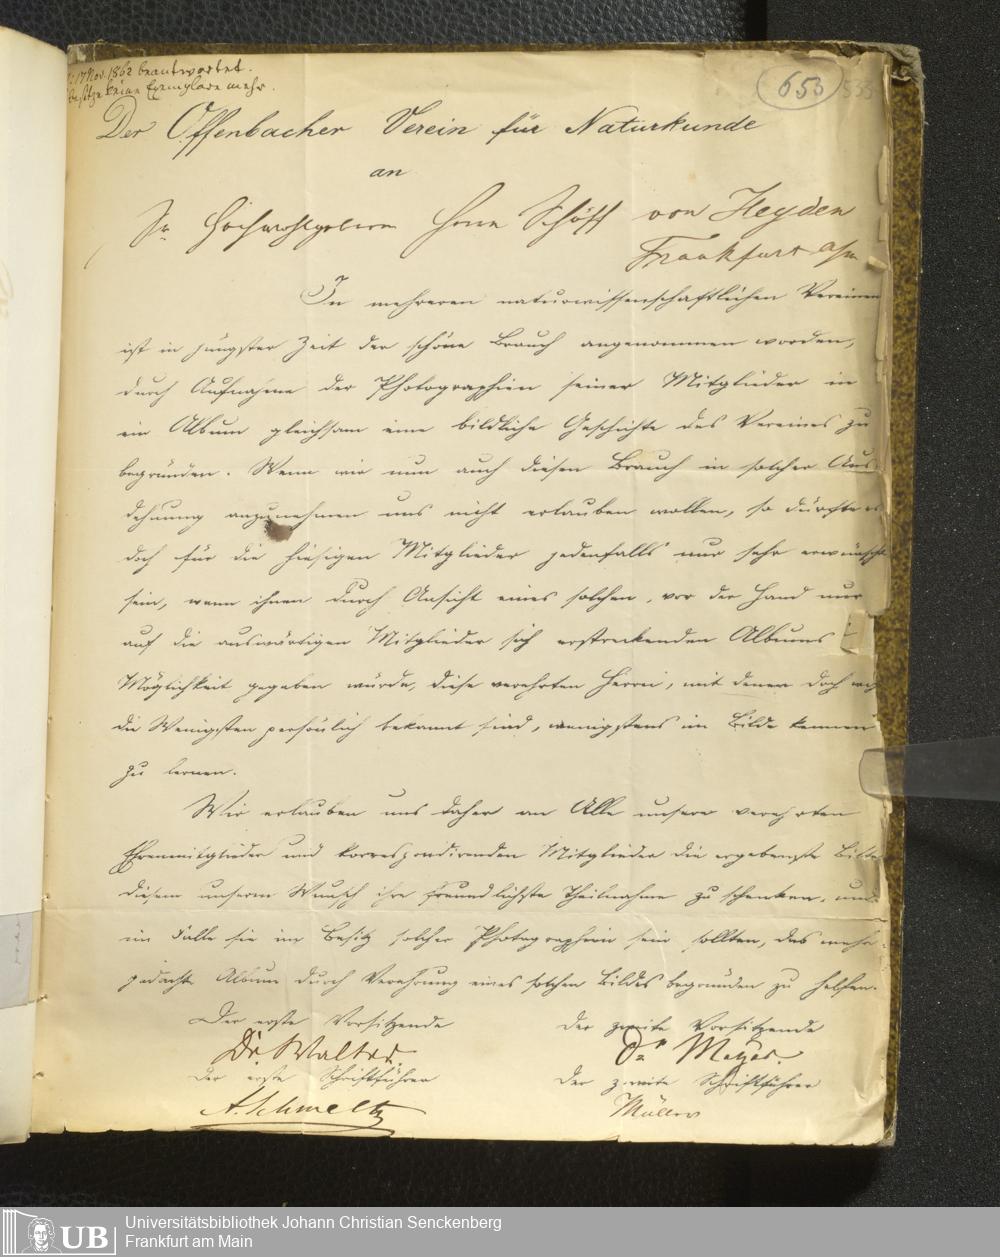 17 Nov. 1862 beantwortet.
besitze keine Exemplare mehr.
653
535
Der Offenbacher Verein für Naturkunde
an
Sr Hochwohlgeboren Herrn Schöff von Heyden
Frankfurt a/m
In mehreren naturwissenschaftlichen Vereinen
ist in jüngster Zeit der schöne Brauch angenommen worden,
durch Aufnahme der Photographien seiner Mitglieder in
ein Album gleichsam eine bildliche Geschichte des Vereines zu
begründen. Wenn wir nun auch diesen Brauch in solcher Aus
dehnung anzunehmen uns nicht erlauben wollen, so dürfte es
doch für die hiesigen Mitglieder jedenfalls nur sehr erwünscht
sein, wenn ihnen durch Ansicht eines solchen, vor der Hand nur
auf die auswärtigen Mitglieder sich erstreckenden Albums
Möglichkeit gegeben würde, diese verehrten Herrn, mit denen doch
die Wenigsten persönlich bekannt sind, wenigstens im Bilde kennen
zu lernen.
Wir erlauben uns daher an Alle unsere verehrten
Ehrenmitglieder und korrespondirenden Mitglieder die ergebenste Bitte
diesem unserm Wunsch ihre freundlichste Theilnahme zu schenken, und
im Falle sie im Besitz solcher Photographien sein sollten, das mehr-
gedachte Album durch Verehrung eines solchen Bildes begründen zu helfen.
Der erste Vorsitzende
Dr. Walter.
der erste Schriftführer
A. Schmeltz
der zweite Vorsitzende
Dr
der zweite Schriftführer
Müller
UB
Universitätsbibliothek Johann Christian Senckenberg
Frankfurt am Main